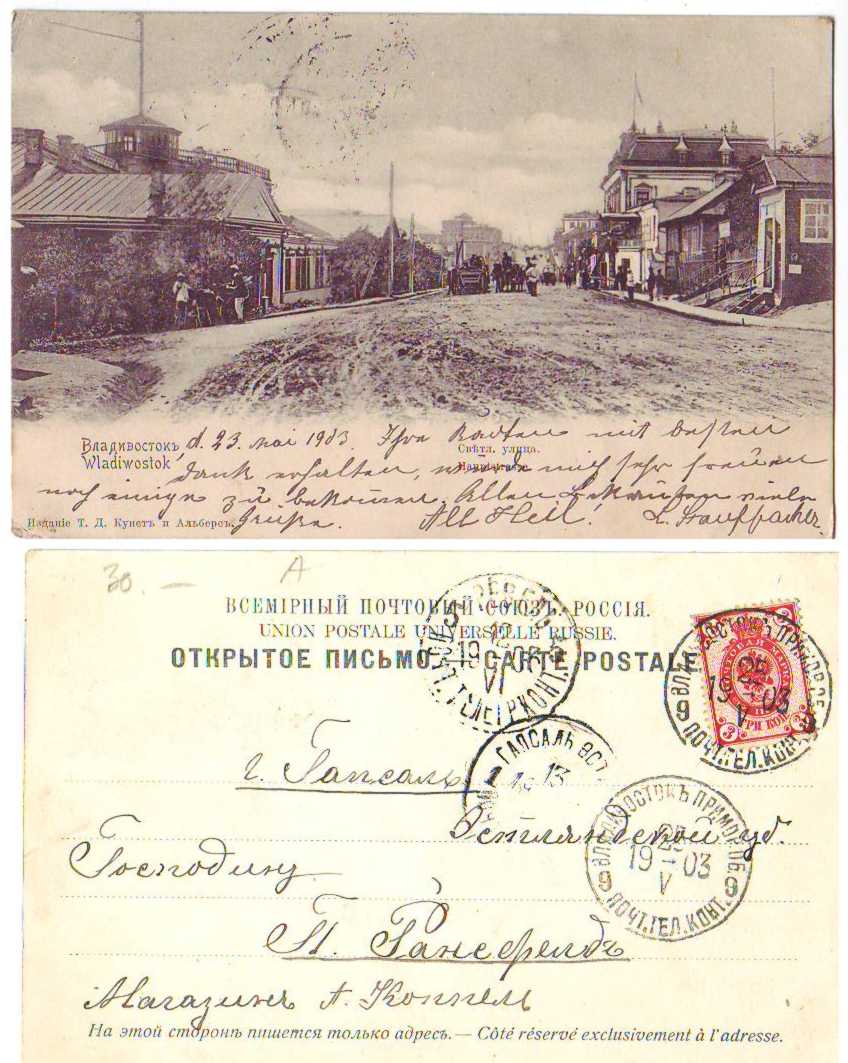 Владивостокъ d. 23. Mai 1903. Ihre Karten mit besten
Свѣтл. улица.
Wladiwostok Dank erhalten, mich sehr freuen
Hauptstrasse.
noch einige zu bekommen. Allen viele
Изданіе Т. Д. Кунстъ и Альберсъ. Grüße. All Heil!
30.— A
ВСЕМІРНЫЙ ПОЧТОВЫЙ СОЮЗЪ. РОССІЯ.
UNION POSTALE UNIVERSELLE RUSSIE.
ОТКРЫТОЕ ПИСЬМО. — CARTE POSTALE
РЕВЕЛЬ
12
19 03
VI
ПОЧТ. ТЕЛЕГР. КОНТ.
ВЛАДИВОСТОКЪ ПРИМОР. ОБ.
25
19 03
V
9 9
ПОЧТ. ТЕЛ. КОНТ.
3 3
ГАПСАЛЬ ЭСТ
1 13
г. Гапсаль
Эстляндской губ.
ВЛАДИВОСТОКЪ ПРИМОР. ОБ.
25
19 03
V
9 9
ПОЧТ. ТЕЛ. КОНТ.
Господину
П. Рансфельдъ
Магазинъ А. Коппель
На этой сторонѣ пишется только адресъ. — Côté réservé exclusivement à l'adresse.